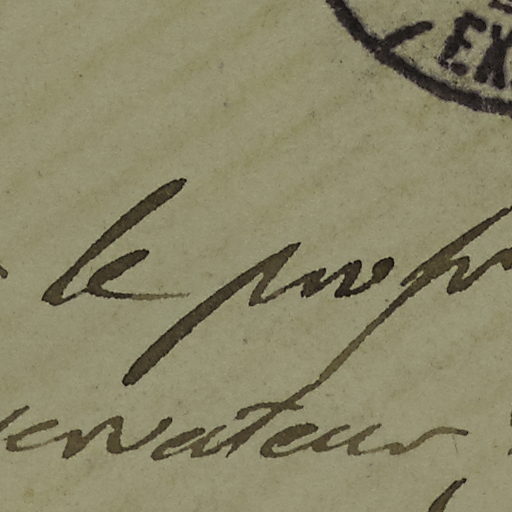 EX
le prof
servateur